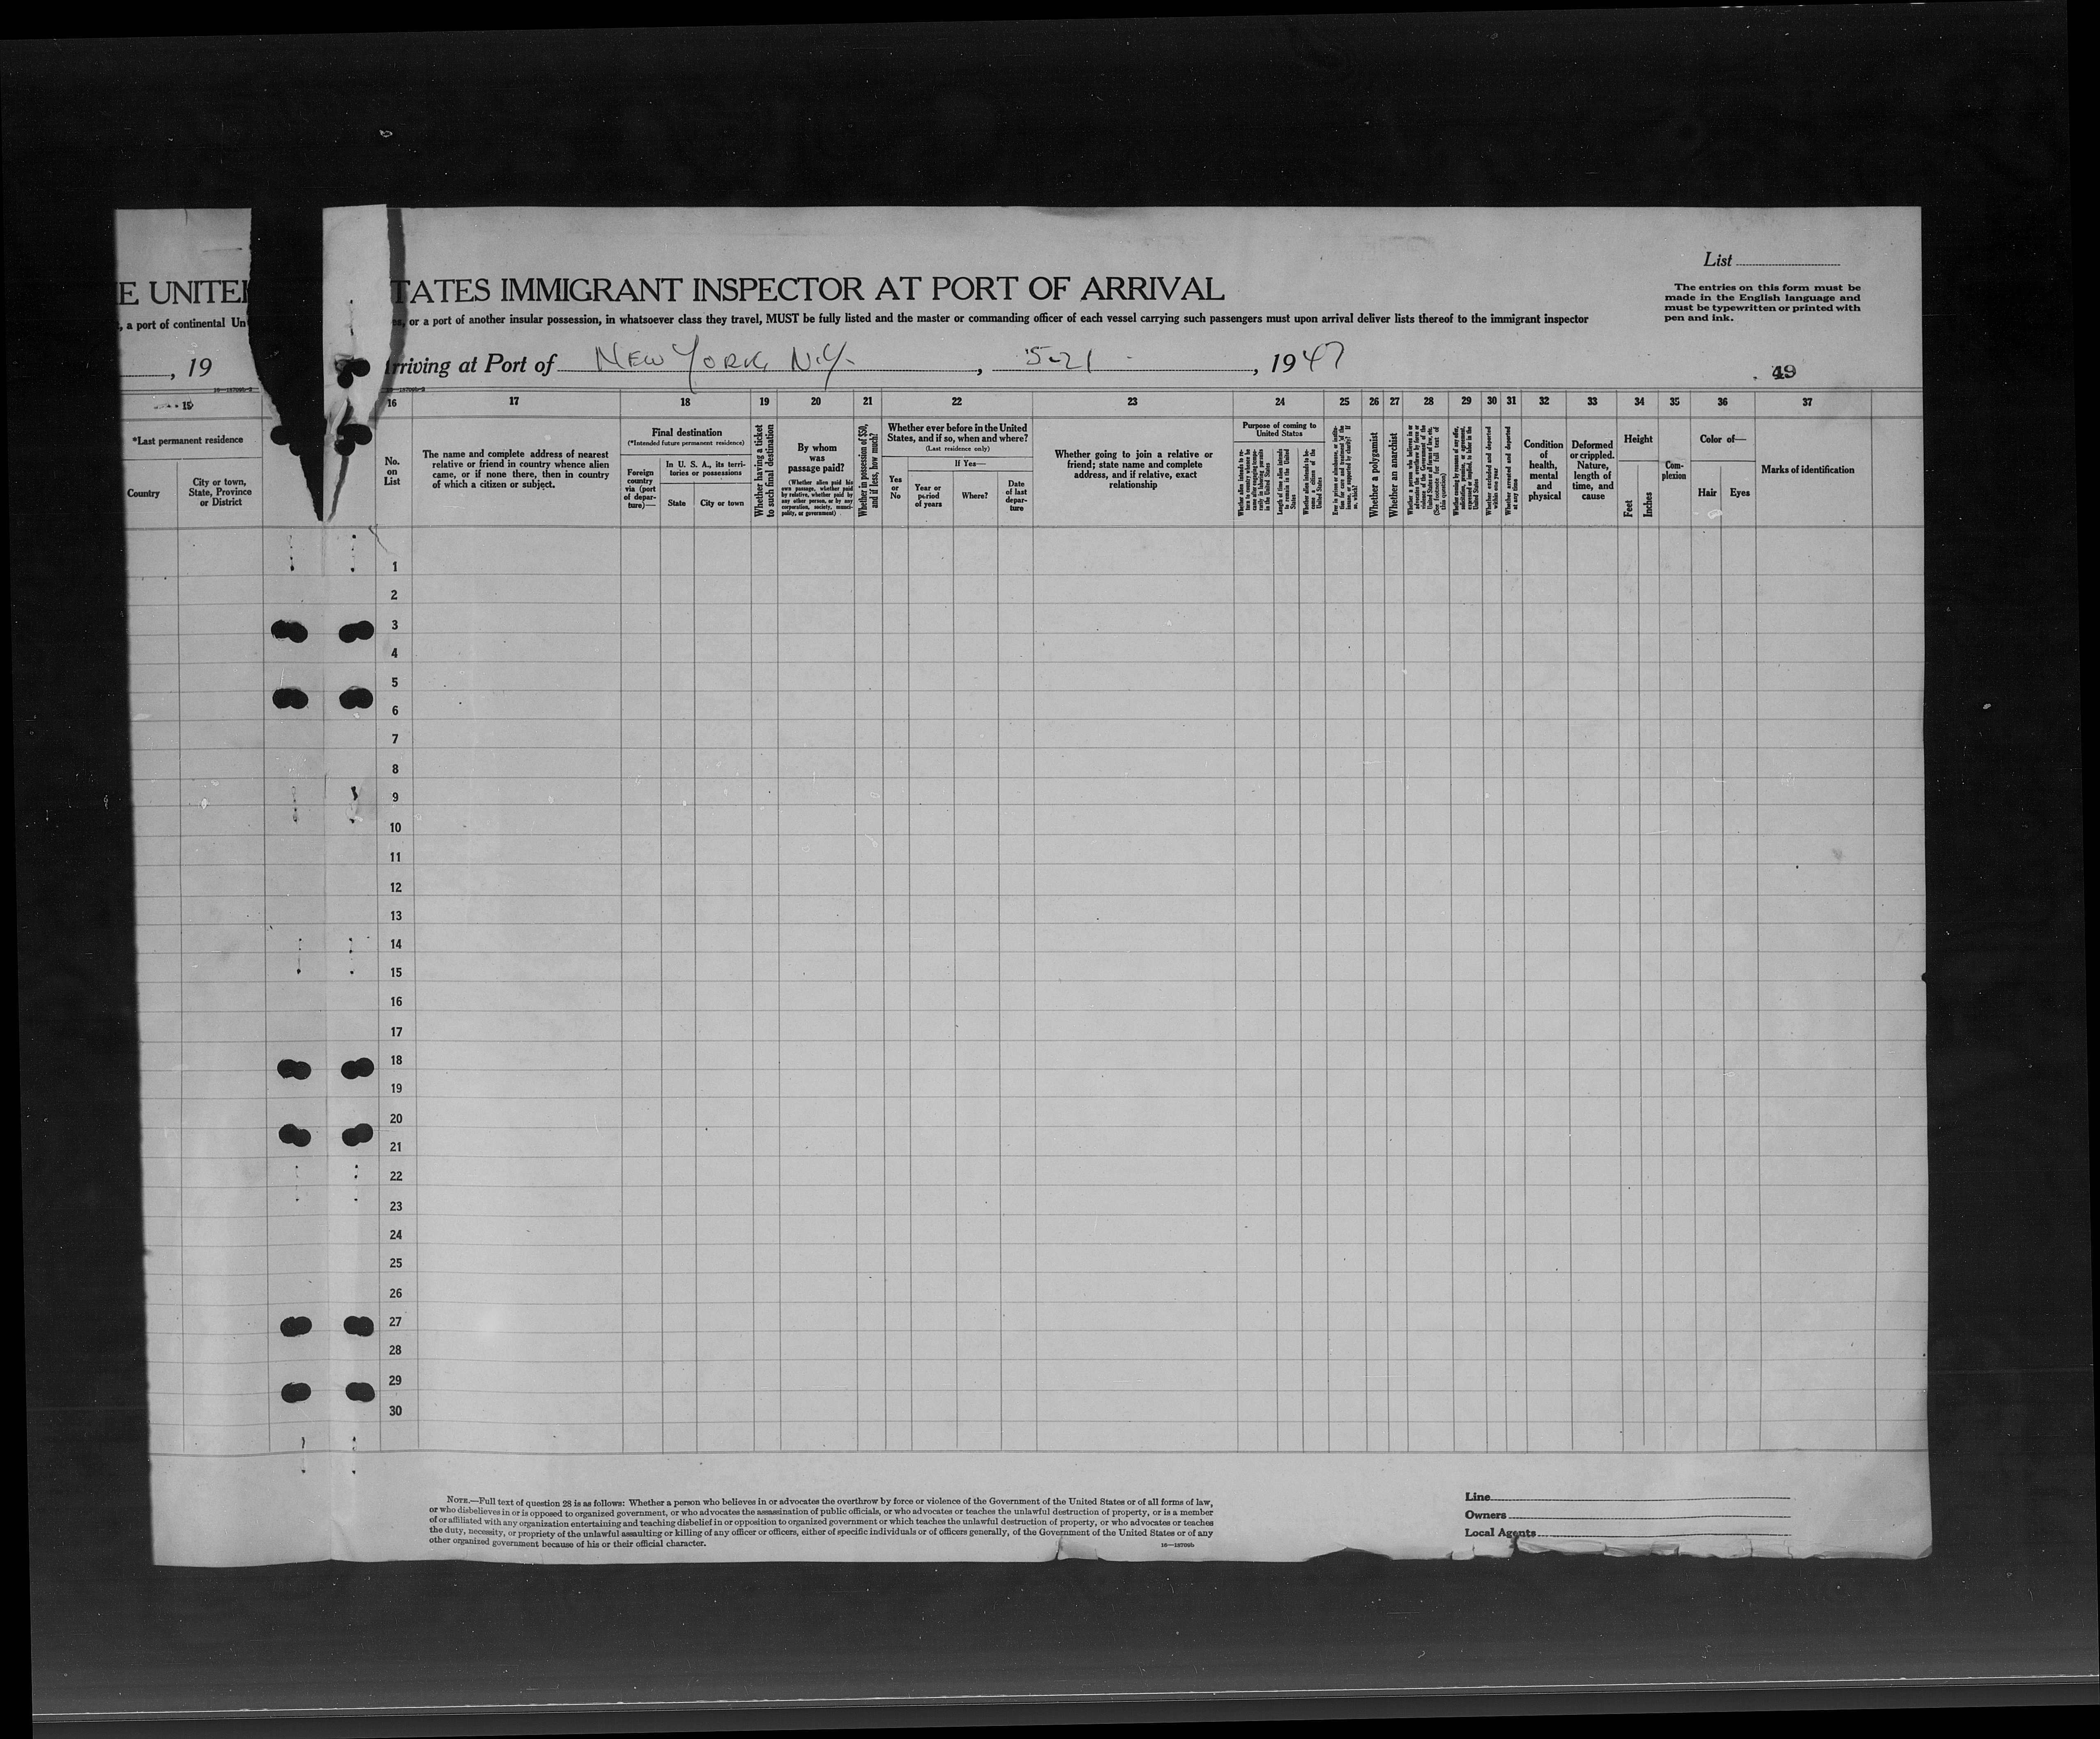 E UNITE
TATES IMMIGRANT INSPECTOR AT PORT OF ARRIVAL
List
The entries on this form must be
made in the English language and
must be typewritten or printed with
pen and ink.
, a port of continental Un
or a port of another insular possession, in whatsoever class they travel, MUST be fully listed and the master or commanding officer of each vessel carrying such passengers must upon arrival deliver lists thereof to the immigrant inspector
, 19
rriving at Port of NEW YORK, N.Y. , 5-21 , 1947
49
15
16 17 18 19 20 21 22 23 24 25 26 27 28 29 30 31 32 33 34 35 36 37
*Last permanent residence
Country
City or town,
State, Province
or District
No.
on
List
The name and complete address of nearest
relative or friend in country whence alien
came, or if none there, then in country
of which a citizen or subject.
Final destination
(*Intended future permanent residence)
Foreign
country
via (port
of depar-
ture)—
In U. S. A., its terri-
tories or possessions
State
City or town
Whether having a ticket
to such final destination
By whom
was
passage paid?
(Whether alien paid his
own passage, whether paid
by relative, whether paid by
any other person, or by any
corporation, society, munici-
pality, or government)
Whether in possession of $50,
and if less, how much?
Whether ever before in the United
States, and if so, when and where?
(Last residence only)
Yes
or
No
If Yes—
Year or
period
of years
Where?
Date
of last
depar-
ture
Whether going to join a relative or
friend; state name and complete
address, and if relative, exact
relationship
Purpose of coming to
United States
Length of time alien intends
to remain in the United
States
Whether alien intends to be-
come a citizen of the
United States
Whether a polygamist
Whether an anarchist
Whether arrested and deported
at any time
Condition
of
health,
mental
and
physical
Deformed
or crippled.
Nature,
length of
time, and
cause
Height
Feet
Inches
Com-
plexion
Color of—
Hair
Eyes
Marks of identification
1
2
3
4
5
6
7
8
9
10
11
12
13
14
15
16
17
18
19
20
21
22
23
24
25
26
27
28
29
30
NOTE.—Full text of question 28 is as follows: Whether a person who believes in or advocates the overthrow by force or violence of the Government of the United States or of all forms of law,
or who disbelieves in or is opposed to organized government, or who advocates the assassination of public officials, or who advocates or teaches the unlawful destruction of property, or is a member
of or affiliated with any organization entertaining and teaching disbelief in or opposition to organized government or which teaches the unlawful destruction of property, or who advocates or teaches
the duty, necessity, or propriety of the unlawful assaulting or killing of any officer or officers, either of specific individuals or of officers generally, of the Government of the United States or of any
other organized government because of his or their official character.
16—18709b
Line
Owners
Local Agents